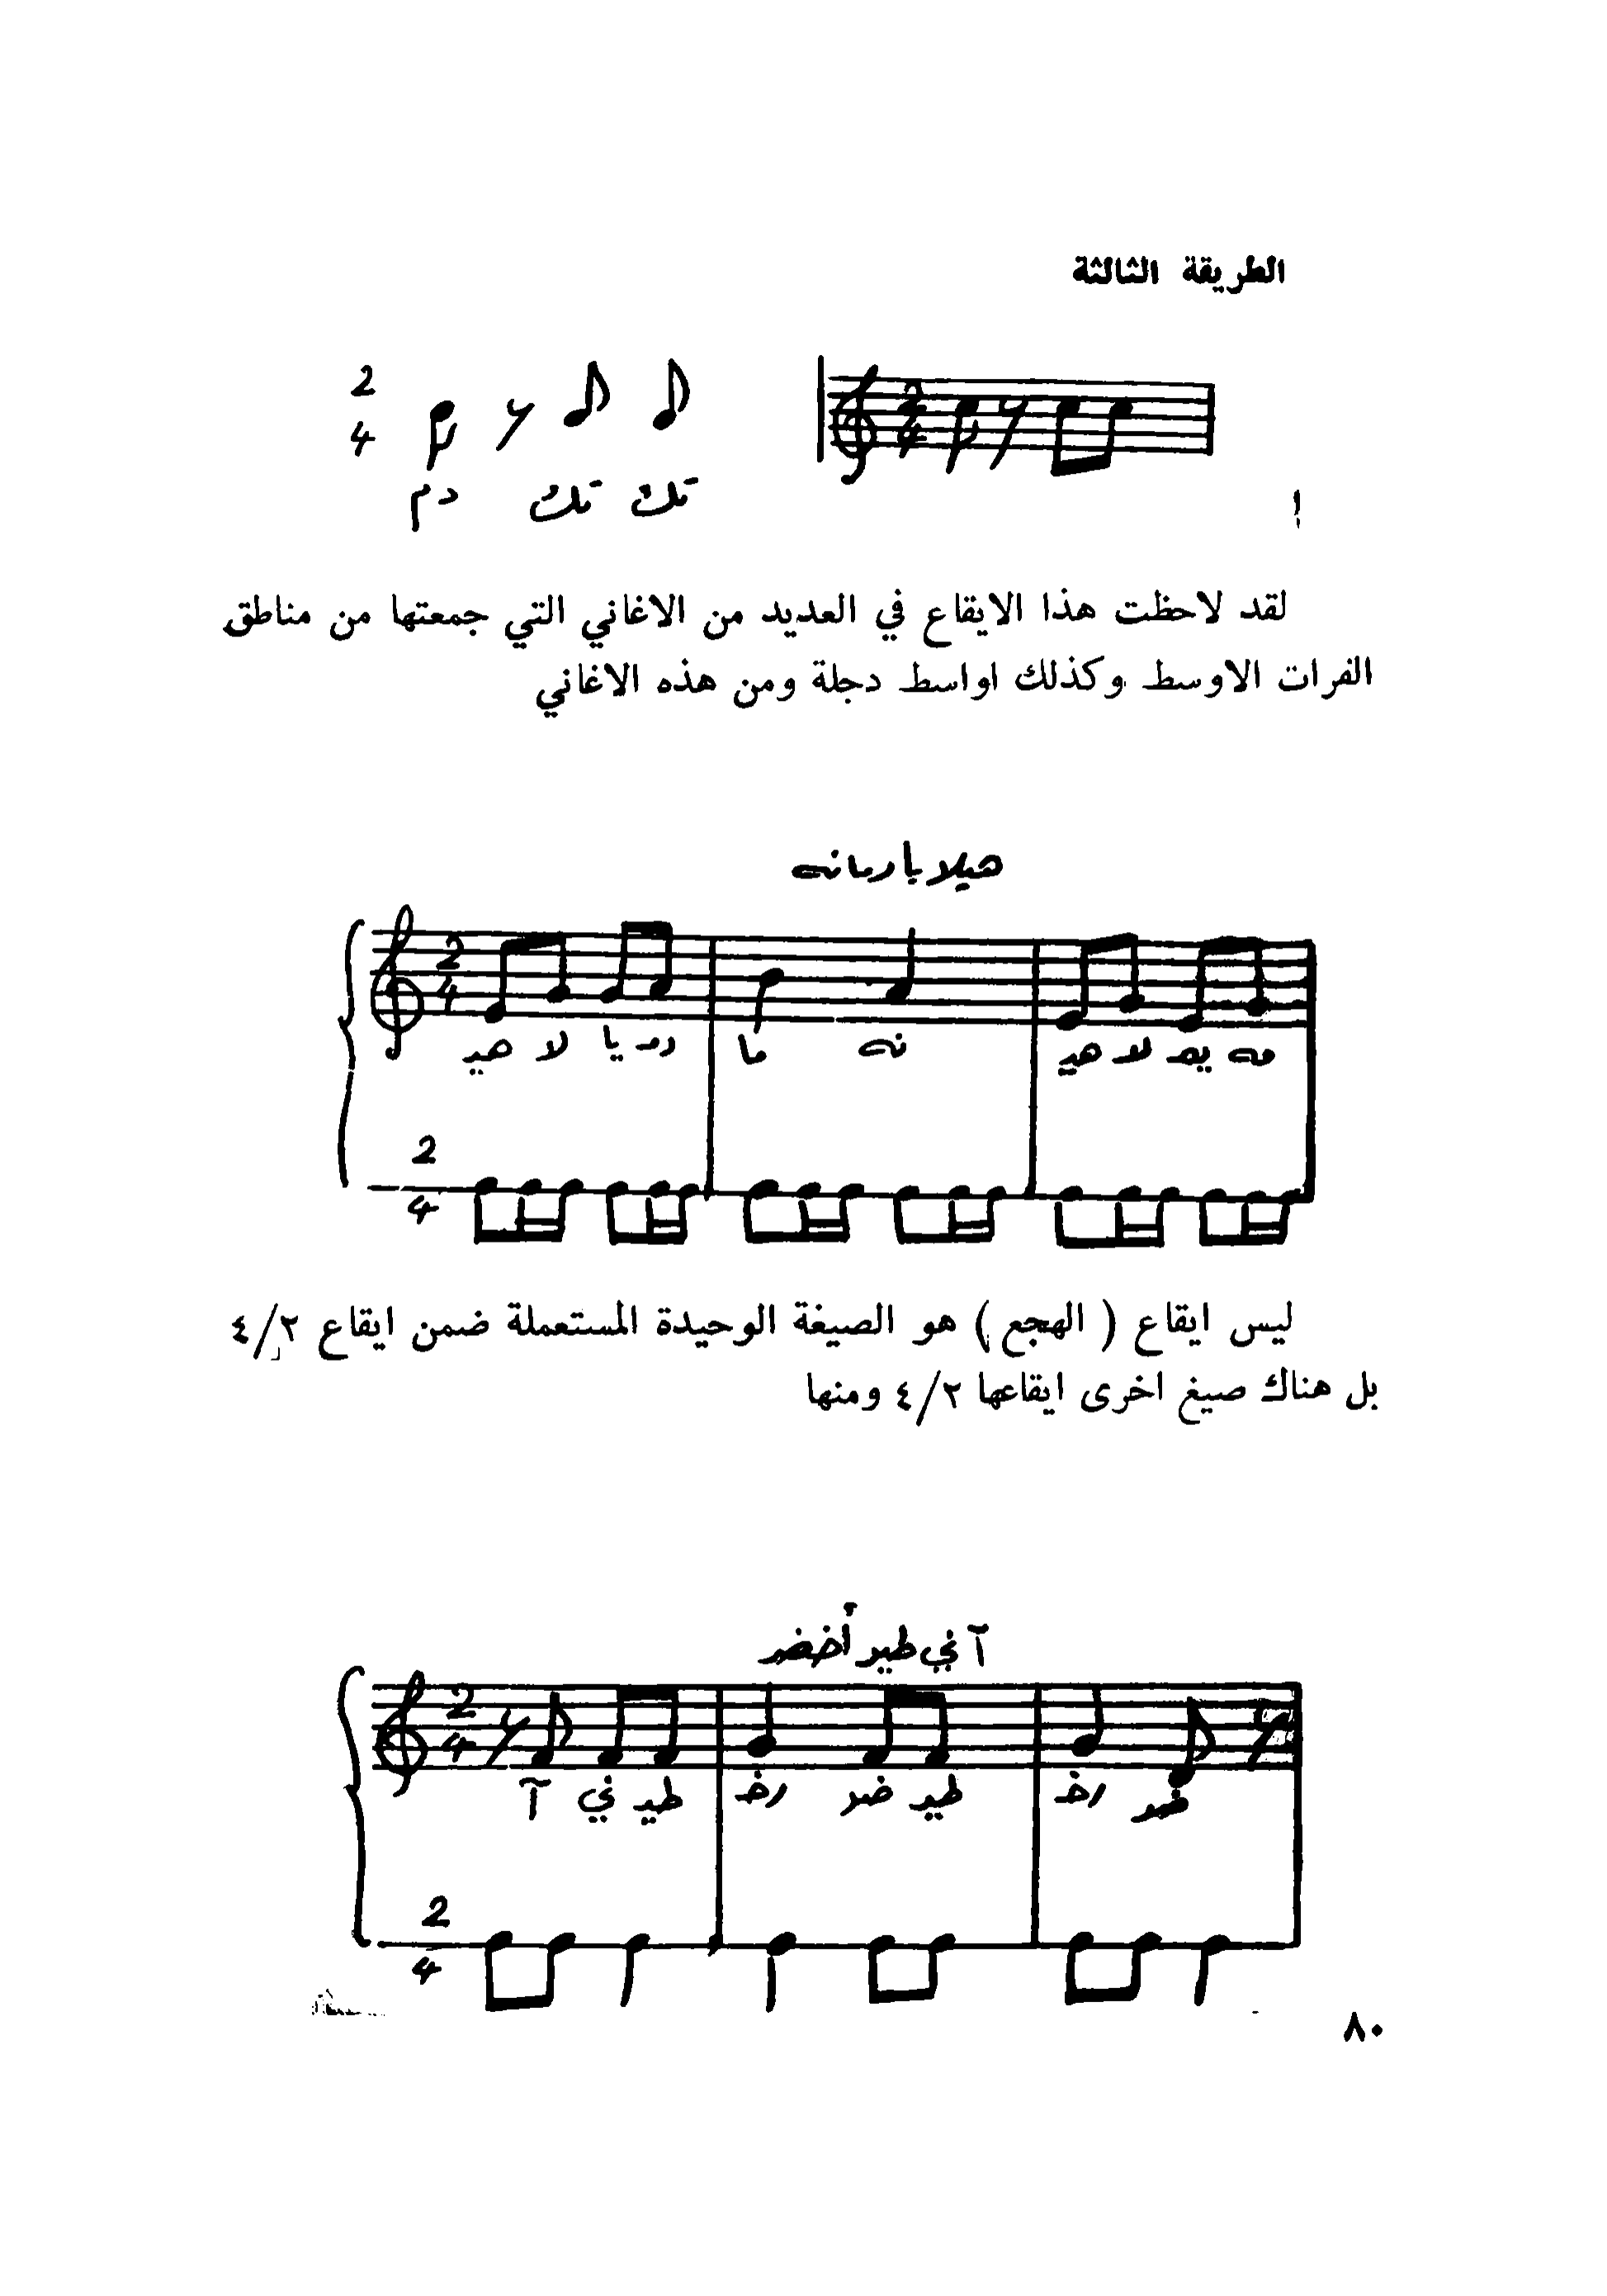 الطريقة الثالثة
2
4
2
4
دم تك تك
لقد لاحظت هذا الايقاع في العديد من الاغاني التي جمعتها من مناطق
الفرات الاوسط وكذلك اواسط دجلة ومن هذه الاغاني
هيلا يا رمانه
2
4
هيـ لا يا رمـ ما نه هيـ لا
2
4
ليس ايقاع ( الهجع ) هو الصيغة الوحيدة المستعملة ضمن ايقاع ٤/٢
بل هناك صيغ اخرى ايقاعها ٤/٢ ومنها
آني طير أخضر
2
4
آ ني طير رخـ ضر طير رخـ ضر
2
4
٨٠